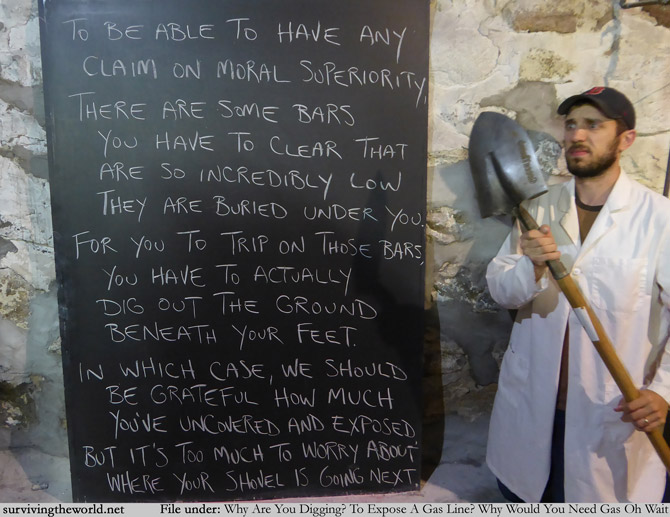 TO BE ABLE TO HAVE ANY
CLAIM ON MORAL SUPERIORITY,
THERE ARE SOME BARS
YOU HAVE TO CLEAR THAT
ARE SO INCREDIBLY LOW
THEY ARE BURIED UNDER YOU.
FOR YOU TO TRIP ON THOSE BARS,
YOU HAVE TO ACTUALLY
DIG OUT THE GROUND
BENEATH YOUR FEET.
IN WHICH CASE, WE SHOULD
BE GRATEFUL HOW MUCH
YOU'VE UNCOVERED AND EXPOSED
BUT IT'S TOO MUCH TO WORRY ABOUT
WHERE YOUR SHOVEL IS GOING NEXT.
survivingtheworld.net File under: Why Are You Digging? To Expose A Gas Line? Why Would You Need Gas Oh Wait